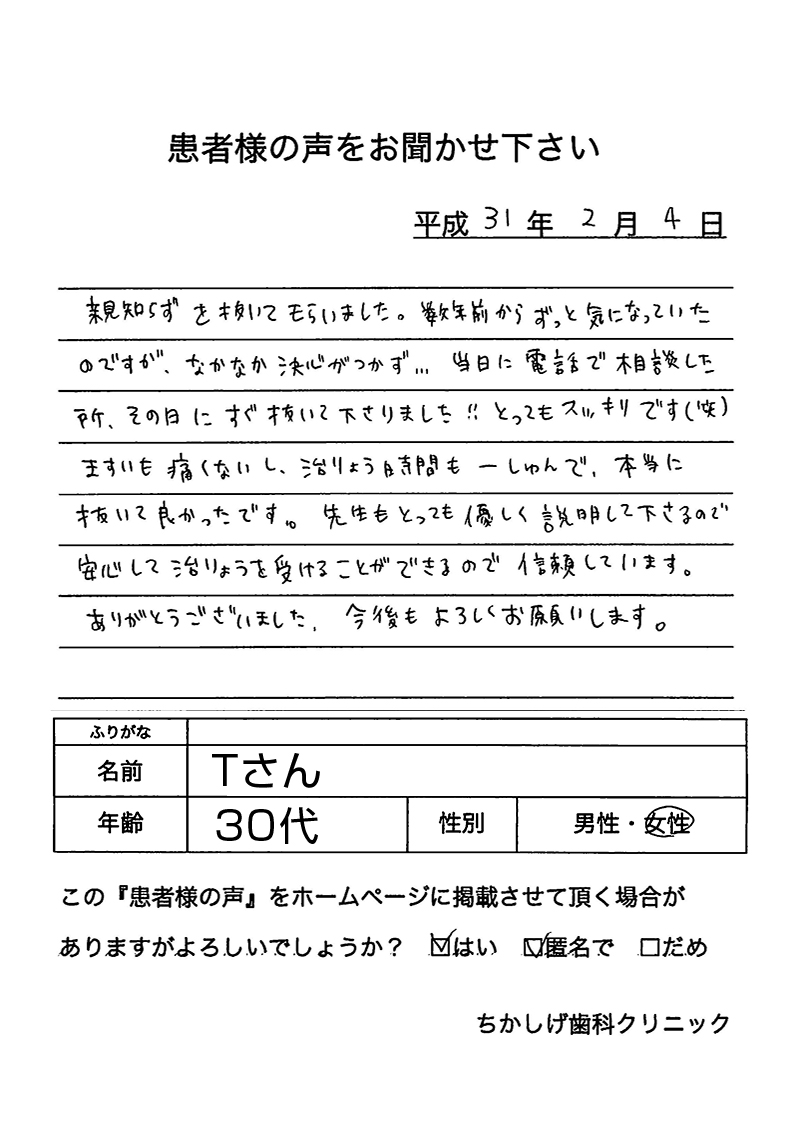 患者様の声をお聞かせ下さい
平成 31 年 2 月 4 日
親知らずを抜いてもらいました。数年前からずっと気になっていた
のですが、なかなか決心がつかず… 当日に電話で相談した
所、その日にすぐ抜いて下さりました!! とってもスッキリです(笑)
ますいも痛くないし、治りょう時間も一しゅんで、本当に
抜いて良かったです。先生もとっても優しく説明して下さるので
安心して治りょうを受けることができるので信頼しています。
ありがとうございました。今後もよろしくお願いします。
ふりがな
名前 Tさん
年齢 30代 性別 男性・女性
この『患者様の声』をホームページに掲載させて頂く場合が
ありますがよろしいでしょうか? ☑はい ☑匿名で □だめ
ちかしげ歯科クリニック